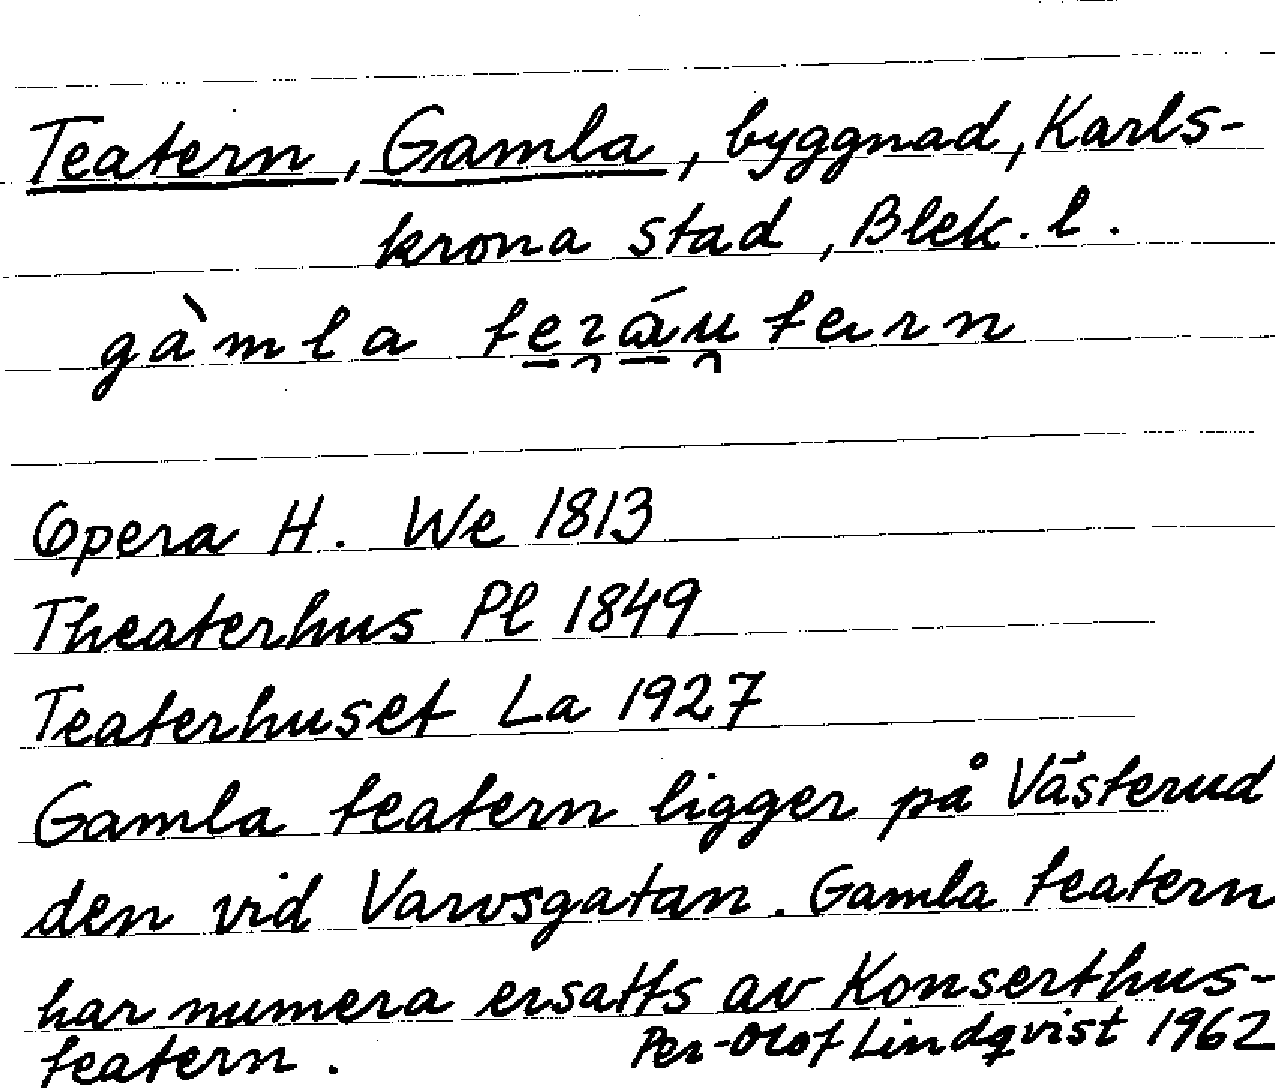 Teatern, Gamla, byggnad, Karls-
krona stad, Blek. l.
gàmla
Opera H. We 1813
Theaterhus Pl 1849
Teaterhuset La 1927
Gamla teatern ligger på Västerud
den vid Varvsgatan. Gamla teatern
har numera ersatts av Konserthus-
teatern. Per-Olof Lindqvist 1962